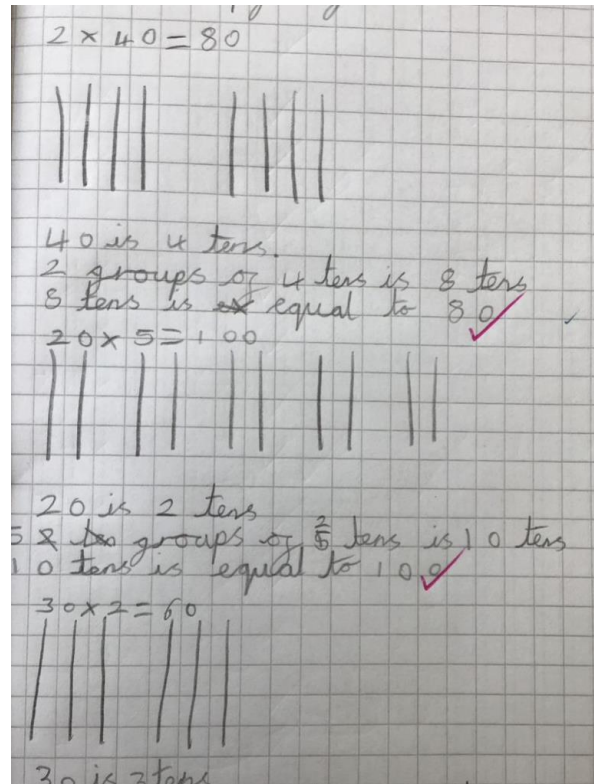 2 × 40 = 80
40 is 4 tens.
2 groups of 4 tens is 8 tens
8 tens is equal to 80
20 × 5 = 100
20 is 2 tens
5 groups of 2 tens is 10 tens
10 tens is equal to 100
30 × 2 = 60
30 is 3 tens